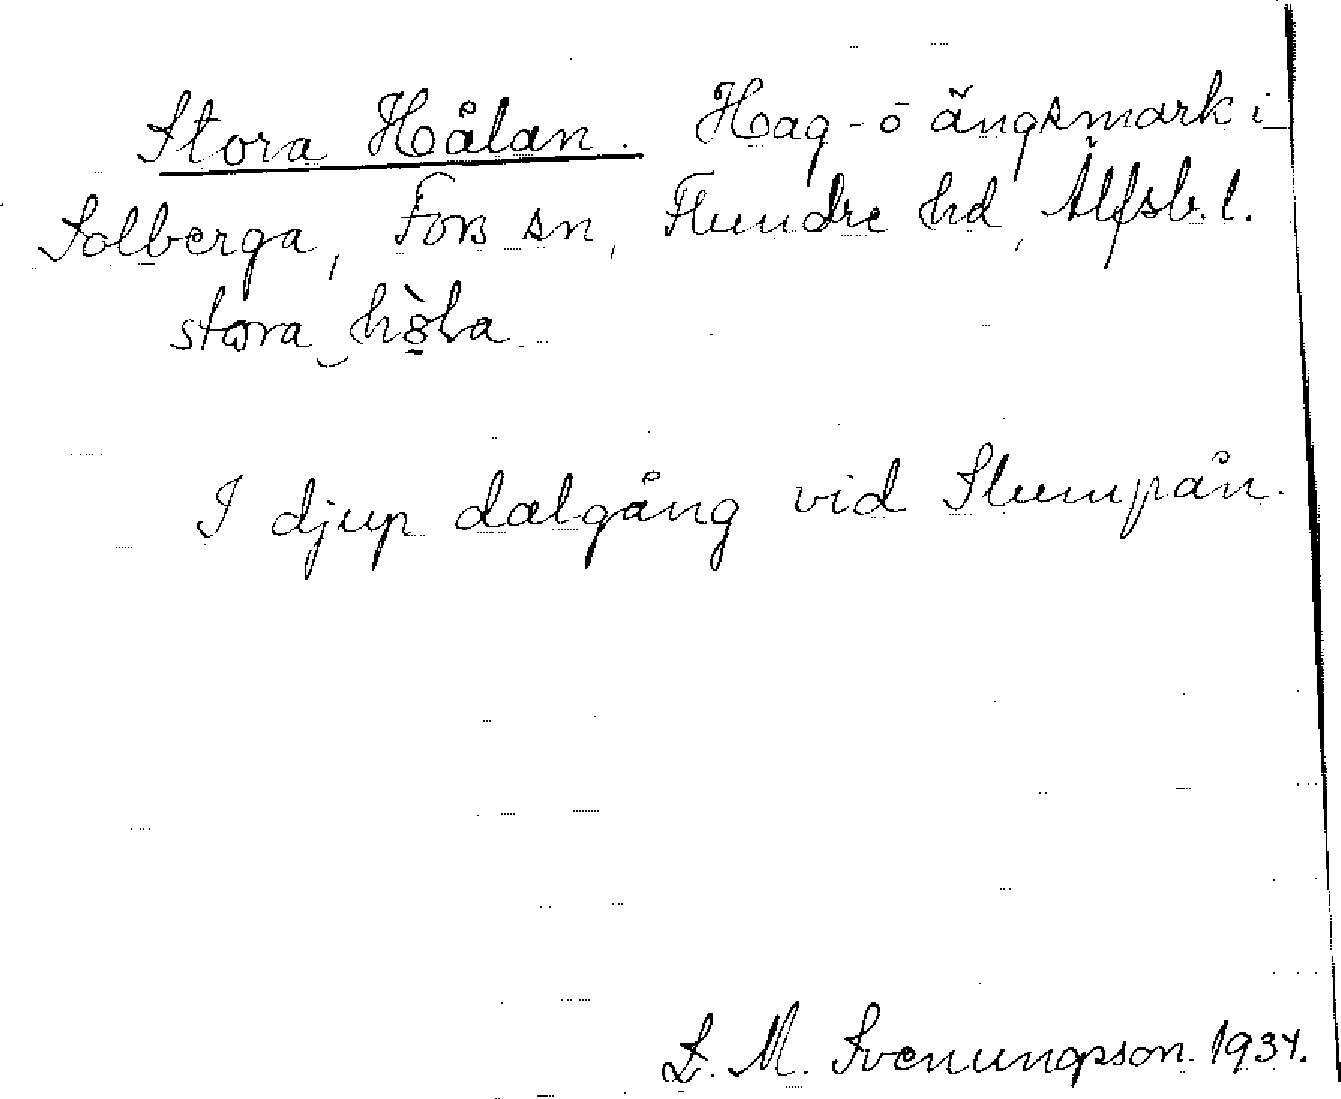 Stora Hålan. Hag- o ängsmark i
Solberga, Fors sn, Flundre hd, Älfsb. l.
stora hòla
I djup dalgång vid Slumpån.
L. M. Svenungsson 1934.